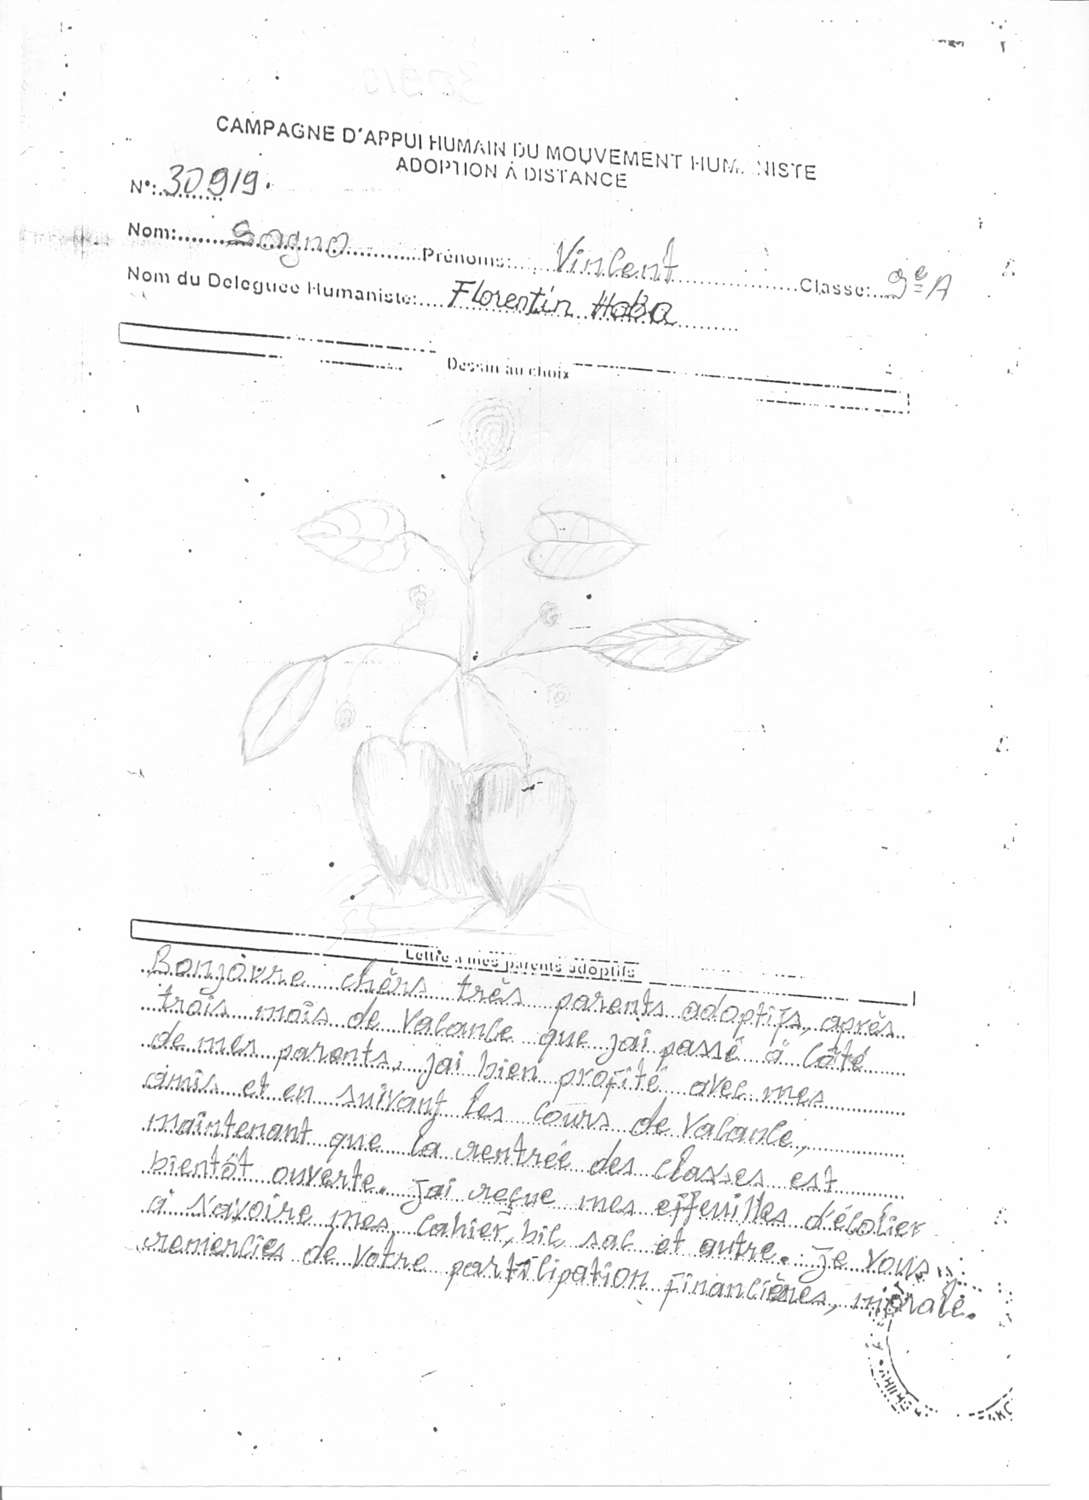 CAMPAGNE D'APPUI HUMAIN DU MOUVEMENT HUM. NISTE
ADOPTION À DISTANCE
N°: 30919.
Nom: Sagno Prénoms: Vincent Classe: 9e A
Nom du Deleguée Humaniste: Florentin Haba
Dessin au choix
Lettre a mes parents adoptifs
Bonjoure chèrs très parents adoptifs, après
trois mois de Vacance que jai passé à côté
de mes parents, jai bien profité avec mes
amis et en suivant les cours de Vacance,
maintenant que la rentrée des classes est
bientôt ouverte. jai reçue mes effeuilles d'écolier
à savoire mes cahier, bic sac et autre. je vous
remercies de votre participation financières, morale.